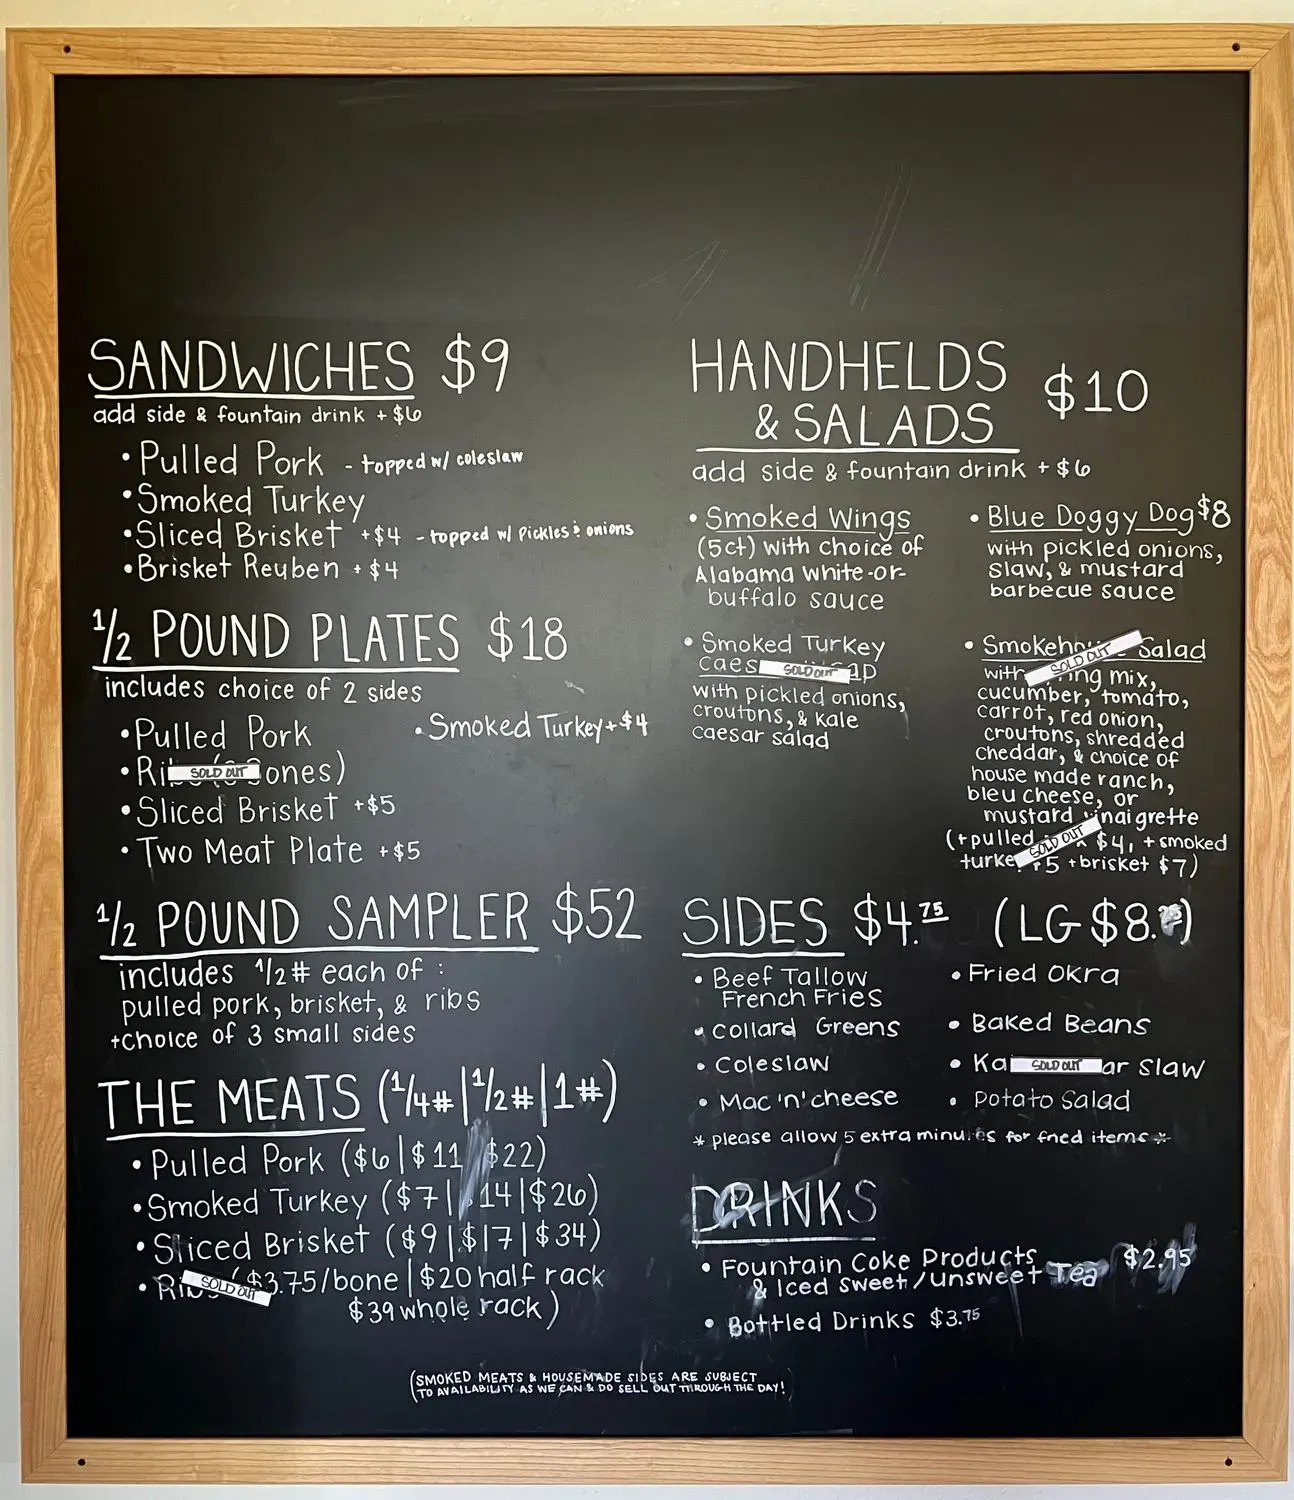 SANDWICHES $9
add side & fountain drink + $6
• Pulled Pork - topped w/ coleslaw
• Smoked Turkey
• Sliced Brisket +$4 - topped w/ Pickles & onions
• Brisket Reuben + $4
1/2 POUND PLATES $18
includes choice of 2 sides
• Pulled Pork
• Smoked Turkey +$4
• SOLD OUT ones)
• Sliced Brisket +$5
• Two Meat Plate +$5
1/2 POUND SAMPLER $52
includes 1/2# each of :
pulled pork, brisket, & ribs
+choice of 3 small sides
THE MEATS (1/4#|1/2#|1#)
• Pulled Pork ($6|$11 $22)
• Smoked Turkey ($7| 14|$26)
• Sliced Brisket ($9|$17|$34)
• SOLD OUT $3.75/bone|$20 half rack
$39 whole rack)
HANDHELDS
& SALADS $10
add side & fountain drink + $6
• Smoked Wings
(5ct) with choice of
Alabama white-or-
buffalo sauce
• Blue Doggy Dog $8
with pickled onions,
slaw, & mustard
barbecue sauce
• Smoked Turkey
Caes SOLD OUT
with pickled onions,
croutons, & kale
caesar salad
• SOLD OUT Salad
with mix,
cucumber, tomato,
carrot, red onion,
croutons, shredded
cheddar, & choice of
house made ranch,
bleu cheese, or
mustard vinaigrette
(+pulled SOLD OUT $4, +smoked
5 +brisket $7)
SIDES $4.75 (LG $8. )
• Beef Tallow
French Fries
• Collard Greens
• Coleslaw
• Mac 'n' cheese
• Fried Okra
• Baked Beans
• Ka SOLD OUT ar Slaw
• Potato Salad
* please allow 5 extra minutes for fried items *
DRINKS
• Fountain Coke Products
& Iced sweet/unsweet Tea $2.95
• Bottled Drinks $3.75
(SMOKED MEATS & HOUSEMADE SIDES ARE SUBJECT
TO AVAILABILITY AS WE CAN & DO SELL OUT THROUGH THE DAY!)